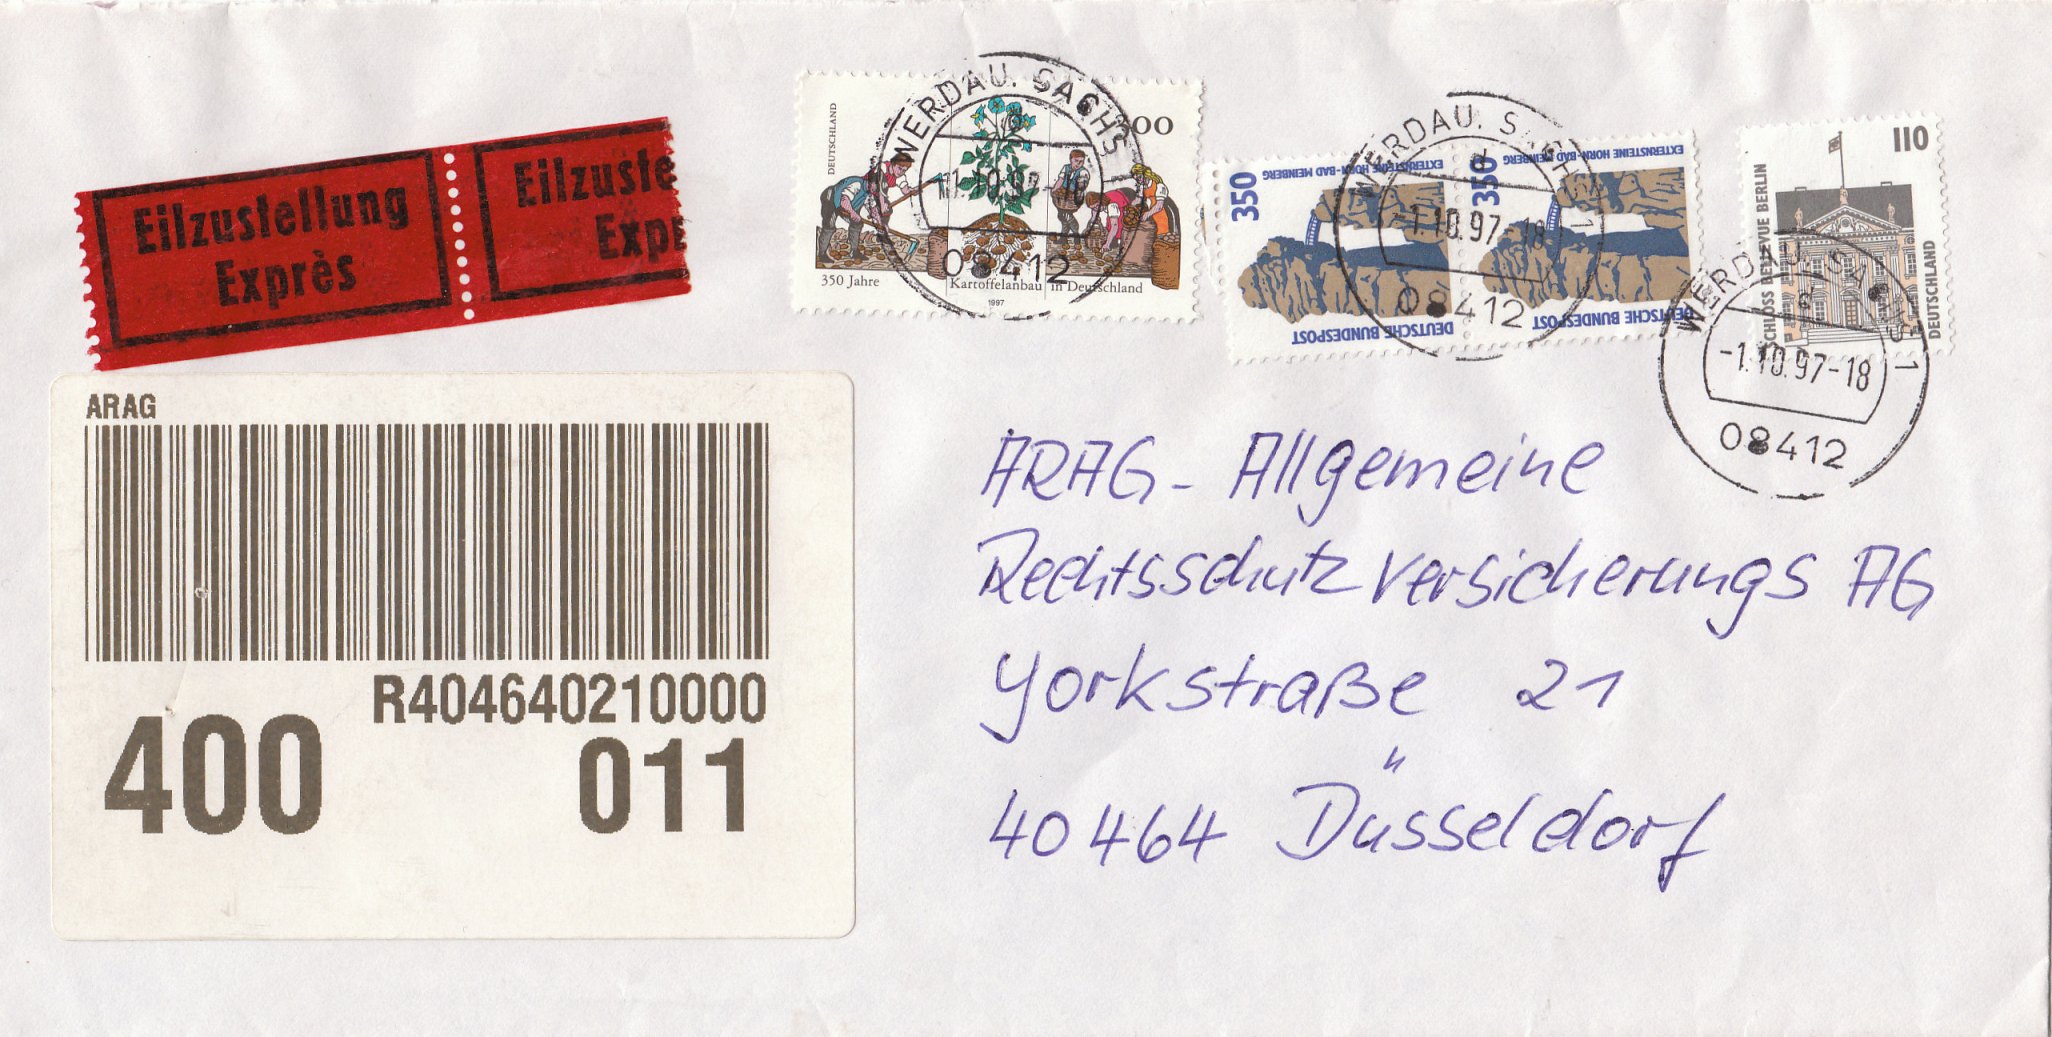 Eilzustellung
Exprès
Eilzuste
Expe
DEUTSCHLAND
300
350 Jahre Kartoffelanbau in Deutschland
1997
WERDAU, SACHS
08412
350
EXTERNSTEINE HORN-BAD MEINBERG
DEUTSCHE BUNDESPOST
350
EXTERNSTEINE HORN-BAD MEINBERG
DEUTSCHE BUNDESPOST
-1.10.97-18
08412
110
SCHLOSS BELLEVUE BERLIN
DEUTSCHLAND
WERDAU
-1.10.97-18
08412
ARAG
R404640210000
400 011
ARAG - Allgemeine
Rechtsschutzversicherungs AG
Yorkstraße 21
40464 Düsseldorf